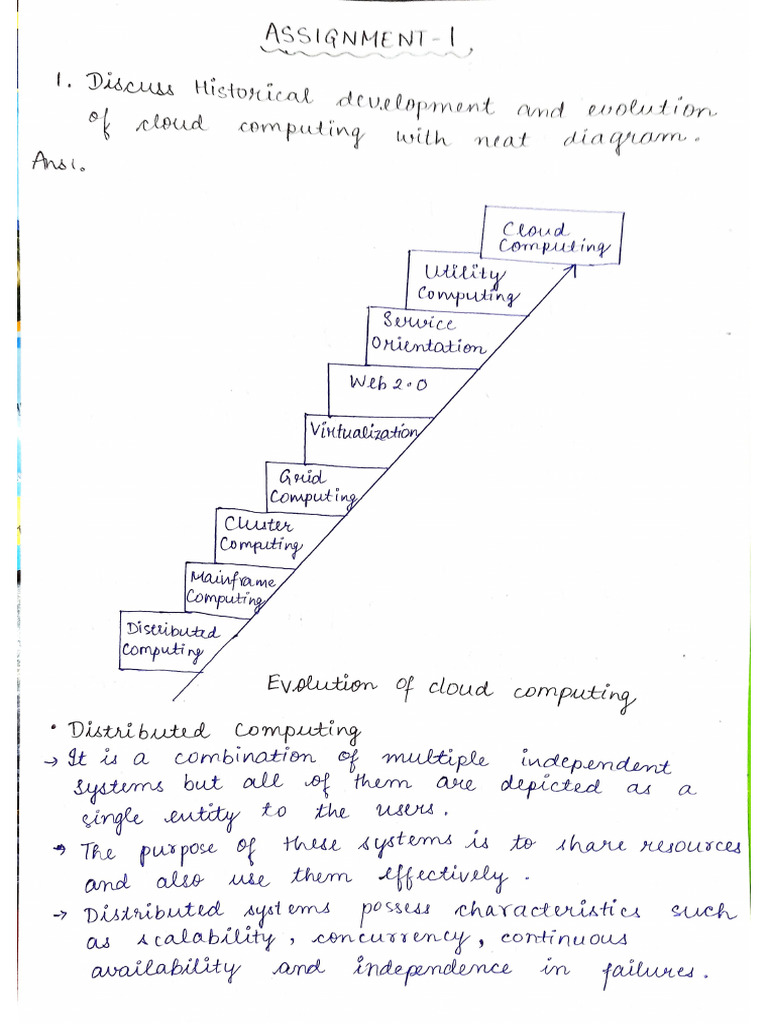 ASSIGNMENT-1
1. Discuss Historical development and evolution
of cloud computing with neat diagram.
Ans1.
Cloud
Computing
Utility
Computing
Service
Orientation
Web 2.0
Virtualization
Grid
Computing
Cluster
Computing
Mainframe
Computing
Distributed
Computing
Evolution of cloud computing
• Distributed Computing
→ It is a combination of multiple independent
systems but all of them are depicted as a
single entity to the users.
→ The purpose of these systems is to share resources
and also use them effectively.
→ Distributed systems possess characteristics such
as scalability, concurrency, continuous
availability and independence in failures.